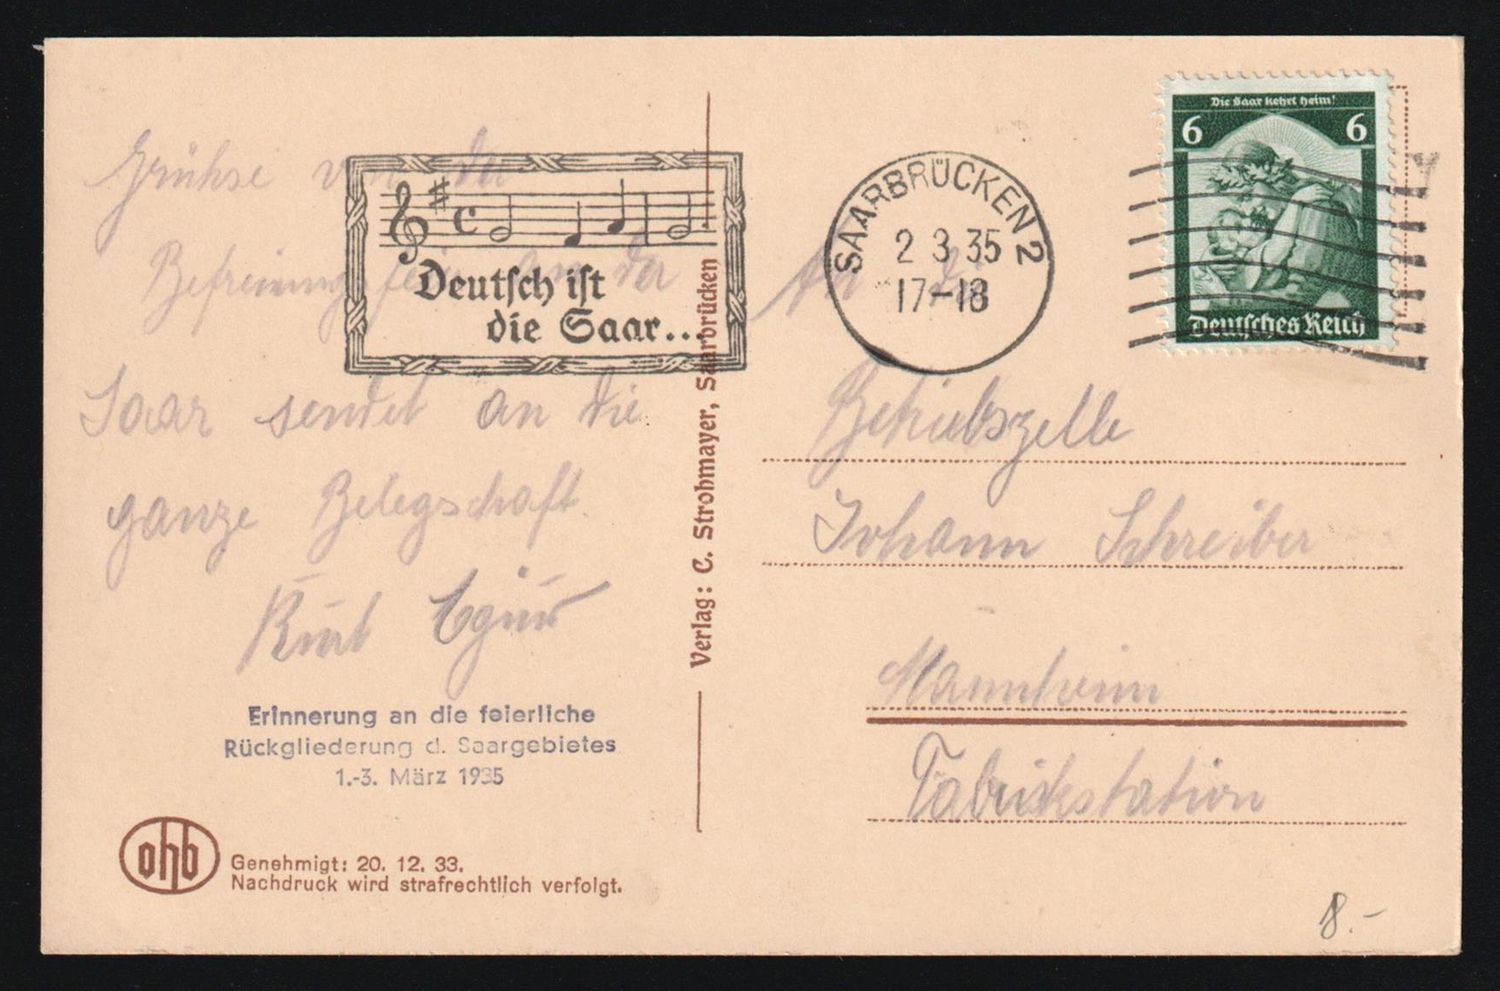 Die Saar kehrt heim!
6 6
Deutsches Reich
SAARBRÜCKEN 2
2 3 35
17-18
Deutsch ist
die Saar...
Grühse von der
Befreiungsfeier an der
Saar sendet an die
ganze Belegschaft.
Kurt
Erinnerung an die feierliche
Rückgliederung d. Saargebietes
1.-3. März 1935
ohb
Genehmigt: 20. 12. 33.
Nachdruck wird strafrechtlich verfolgt.
Verlag: C. Strohmayer, Saarbrücken
An die
Betriebszelle
Johann Schreiber
Mannheim
Fabrikstation
8.-